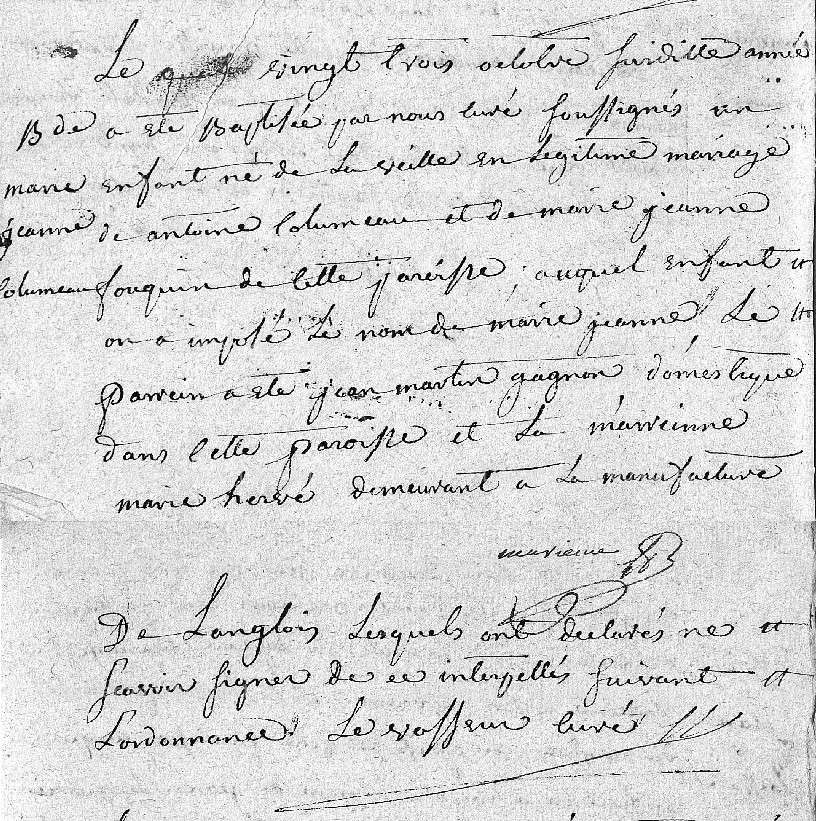 Le vingt trois octobre susditte année
B de
marie
jeanne
Columeau
a ete Baptisée par nous curé soussignés un
enfant né de La veille en Legitime mariage
de antoine Columeau et de marie jeanne
fouquin de cette paroisse, auquel enfant
on a imposé Le nom de marie jeanne Le
parrein a ete jean martin gagnon domestique
dans cette paroisse et La marreinne
marie hervé demeurant a La manufacture
De Langlois Lesquels ont declarés ne
scavoir signer de ce interpellés suivant
Lordonnance. Le vasseur curé